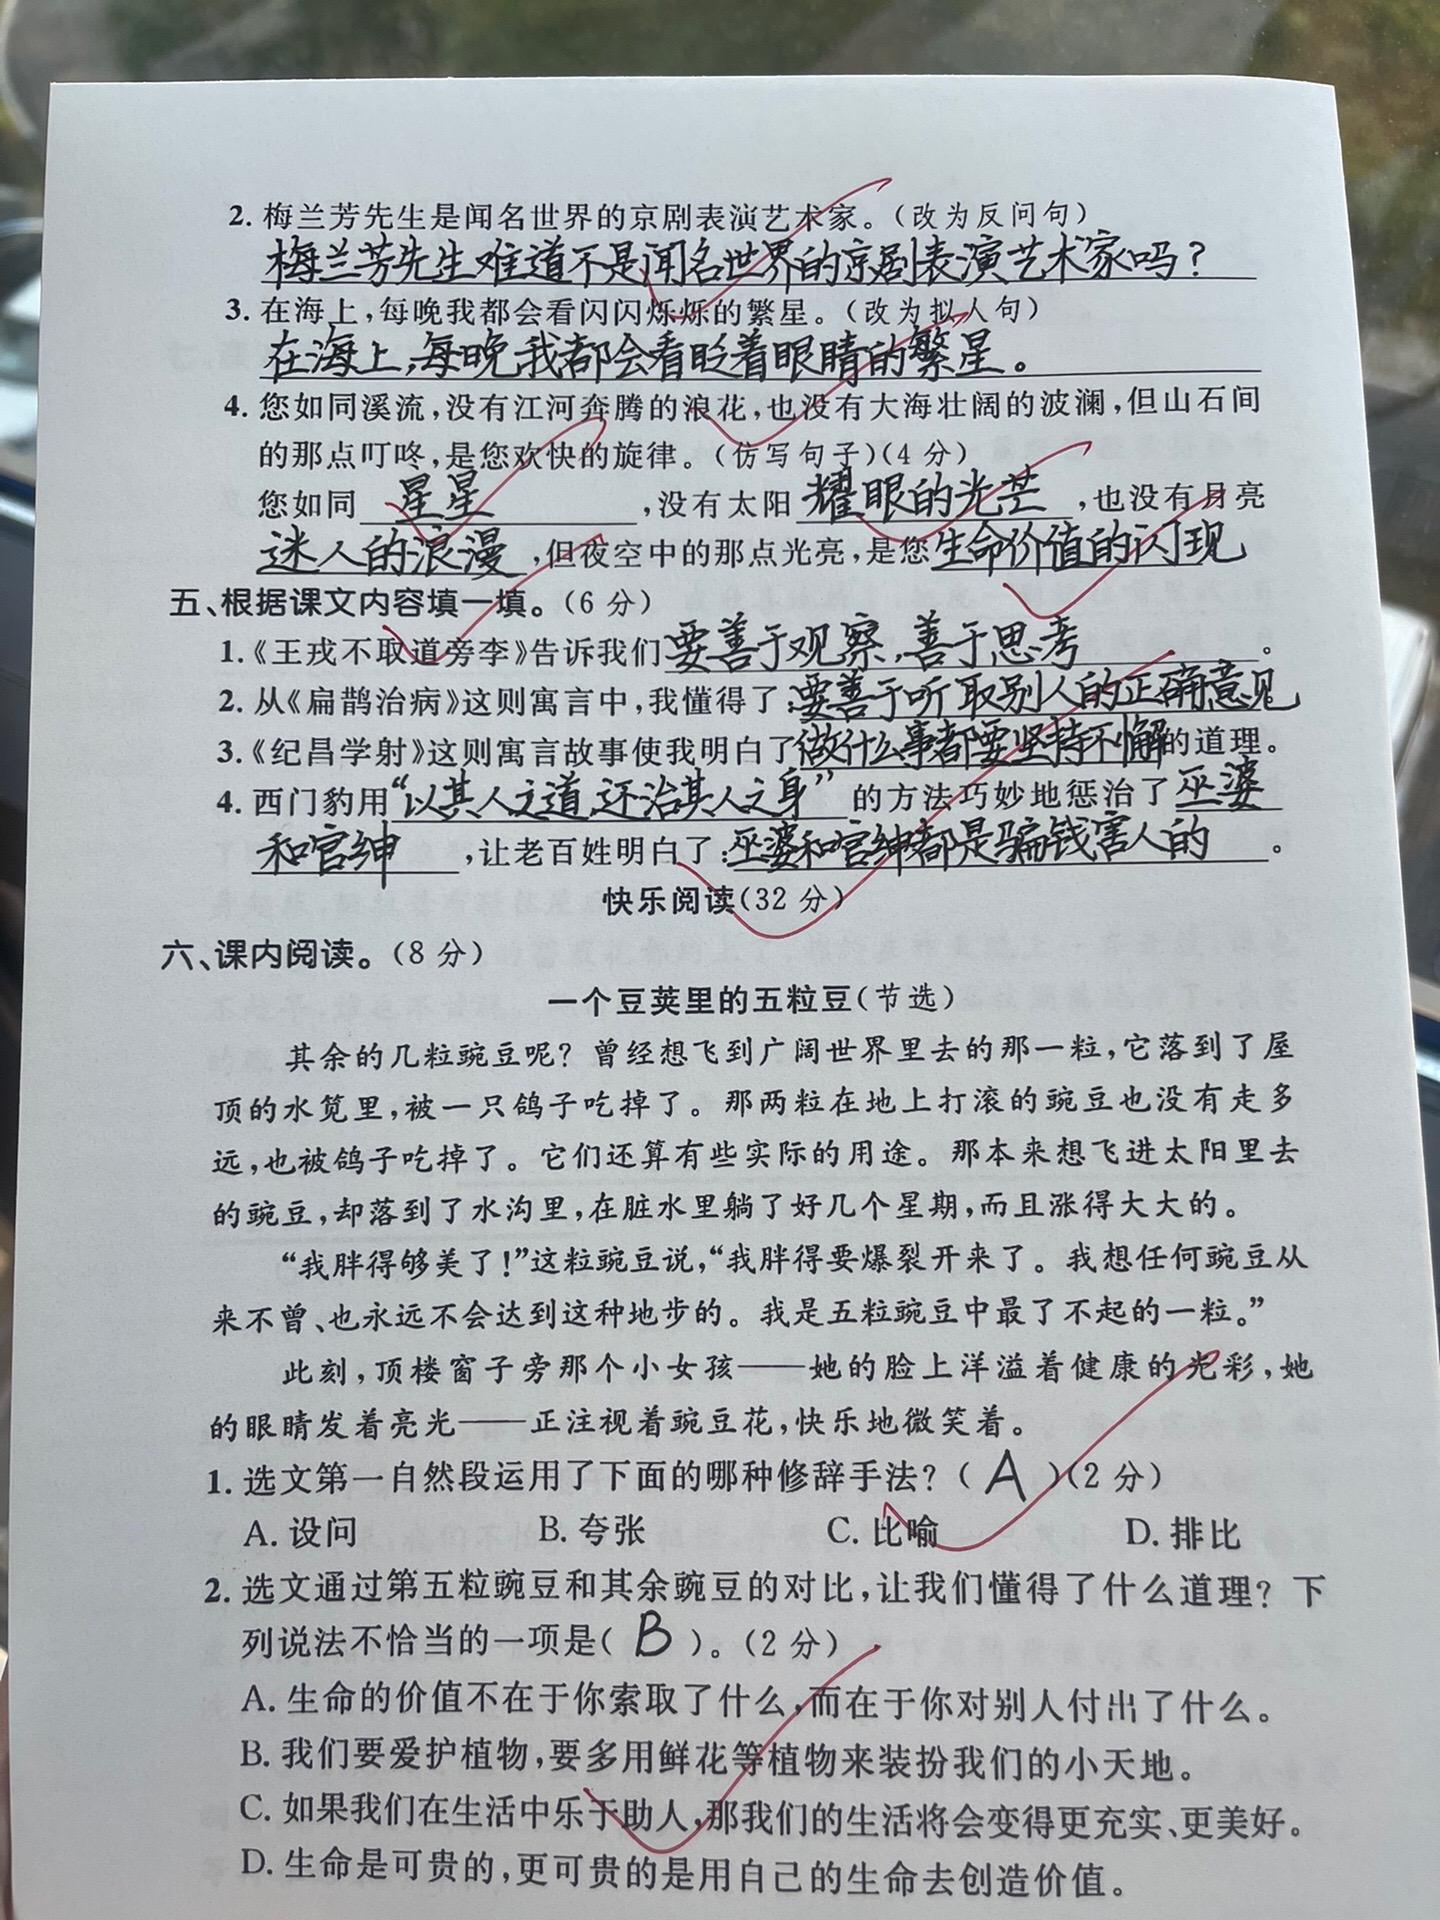 2. 梅兰芳先生是闻名世界的京剧表演艺术家。(改为反问句)
梅兰芳先生难道不是闻名世界的京剧表演艺术家吗?
3. 在海上,每晚我都会看闪闪烁烁的繁星。(改为拟人句)
在海上,每晚我都会看眨着眼睛的繁星。
4. 您如同溪流,没有江河奔腾的浪花,也没有大海壮阔的波澜,但山石间
的那点叮咚,是您欢快的旋律。(仿写句子)(4分)
您如同 星星 ,没有太阳 耀眼的光芒 ,也没有月亮
迷人的浪漫 ,但夜空中的那点光亮,是您生命价值的闪现
五、根据课文内容填一填。(6分)
1.《王戎不取道旁李》告诉我们要善于观察,善于思考。
2. 从《扁鹊治病》这则寓言中,我懂得了:要善于听取别人的正确意见
3.《纪昌学射》这则寓言故事使我明白了做什么事都要坚持不懈的道理。
4. 西门豹用“以其人之道,还治其人之身”的方法巧妙地惩治了巫婆
和官绅 ,让老百姓明白了:巫婆和官绅都是骗钱害人的。
快乐阅读(32分)
六、课内阅读。(8分)
一个豆荚里的五粒豆(节选)
其余的几粒豌豆呢?曾经想飞到广阔世界里去的那一粒,它落到了屋
顶的水笕里,被一只鸽子吃掉了。那两粒在地上打滚的豌豆也没有走多
远,也被鸽子吃掉了。它们还算有些实际的用途。那本来想飞进太阳里去
的豌豆,却落到了水沟里,在脏水里躺了好几个星期,而且涨得大大的。
“我胖得够美了!”这粒豌豆说,“我胖得要爆裂开来了。我想任何豌豆从
来不曾、也永远不会达到这种地步的。我是五粒豌豆中最了不起的一粒。”
此刻,顶楼窗子旁那个小女孩——她的脸上洋溢着健康的光彩,她
的眼睛发着亮光——正注视着豌豆花,快乐地微笑着。
1. 选文第一自然段运用了下面的哪种修辞手法?( A )(2分)
A. 设问 B. 夸张 C. 比喻 D. 排比
2. 选文通过第五粒豌豆和其余豌豆的对比,让我们懂得了什么道理?下
列说法不恰当的一项是( B )。(2分)
A. 生命的价值不在于你索取了什么,而在于你对别人付出了什么。
B. 我们要爱护植物,要多用鲜花等植物来装扮我们的小天地。
C. 如果我们在生活中乐于助人,那我们的生活将会变得更充实、更美好。
D. 生命是可贵的,更可贵的是用自己的生命去创造价值。